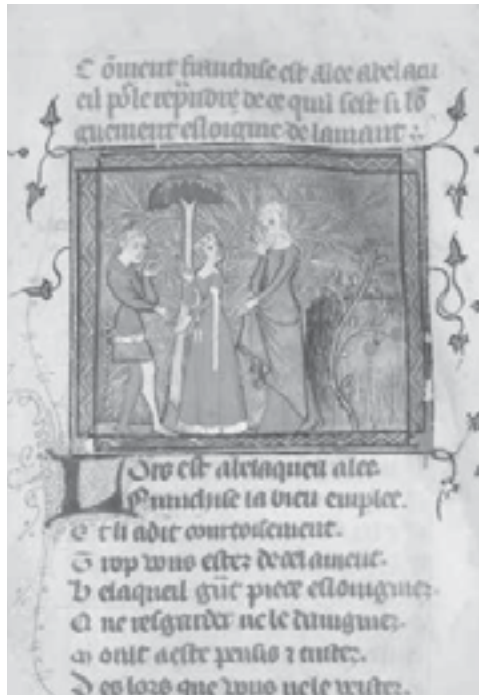 Cōment franchise est alee a bel acu
eil pōˢ le rep̄ndre de ce quil sest si lō
guement esloignie de lamant :.
Lors est a bel aqueil alee
Franchise la bien emplee.
Et li a dit courtoisement.
Trop vous estes de cel ament.
Bel aqueil gūt piece eslongniez.
Q ne resgarder ne le daigniez.
Moult a este pensis ⁊ tristes.
Des lors que vous ne le veistes.